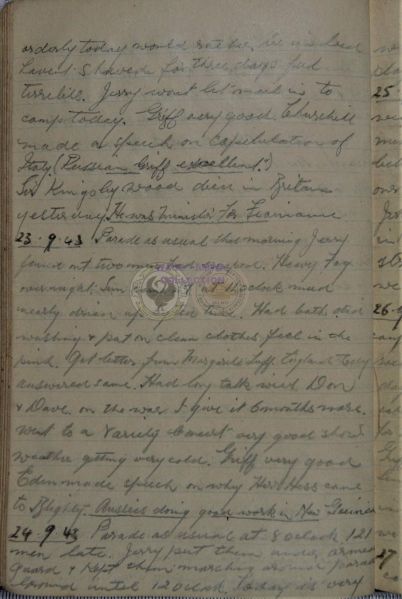 orderly today would rather be in bed
haven't shaved for three days feel
terrible. Jerry wont let mail in to
camp today. Griff very good. Churchill
made a speech on capitulation of
Italy (Russian Griff excellent.)
Sir Kingsley Wood died in Britain
yesterday. He was minister for Finance
23.9.43 Parade as usual this morning Jerry
found out two men had escaped. Heavy Fog
overnight. Sun came out at 11 oclock mud
nearly dried up. Had bath did
washing & put on clean clothes feel in the
pink. Got letter from Margaret Eng England Today
answered same. Had long talk with Don
& Dave on the war I give it 6 months more.
went to a Variety Concert very good show
weather getting very cold. Griff very good
Eden made speech on why Herr Hess came
to Blighty. Aussies doing good work in New Guinea
24.9.43 Parade as usual at 8 oclock 121
men late. Jerry put them under armed
guard & kept them marching around parade
Ground until 12 oclock today is very
25
26.9
27